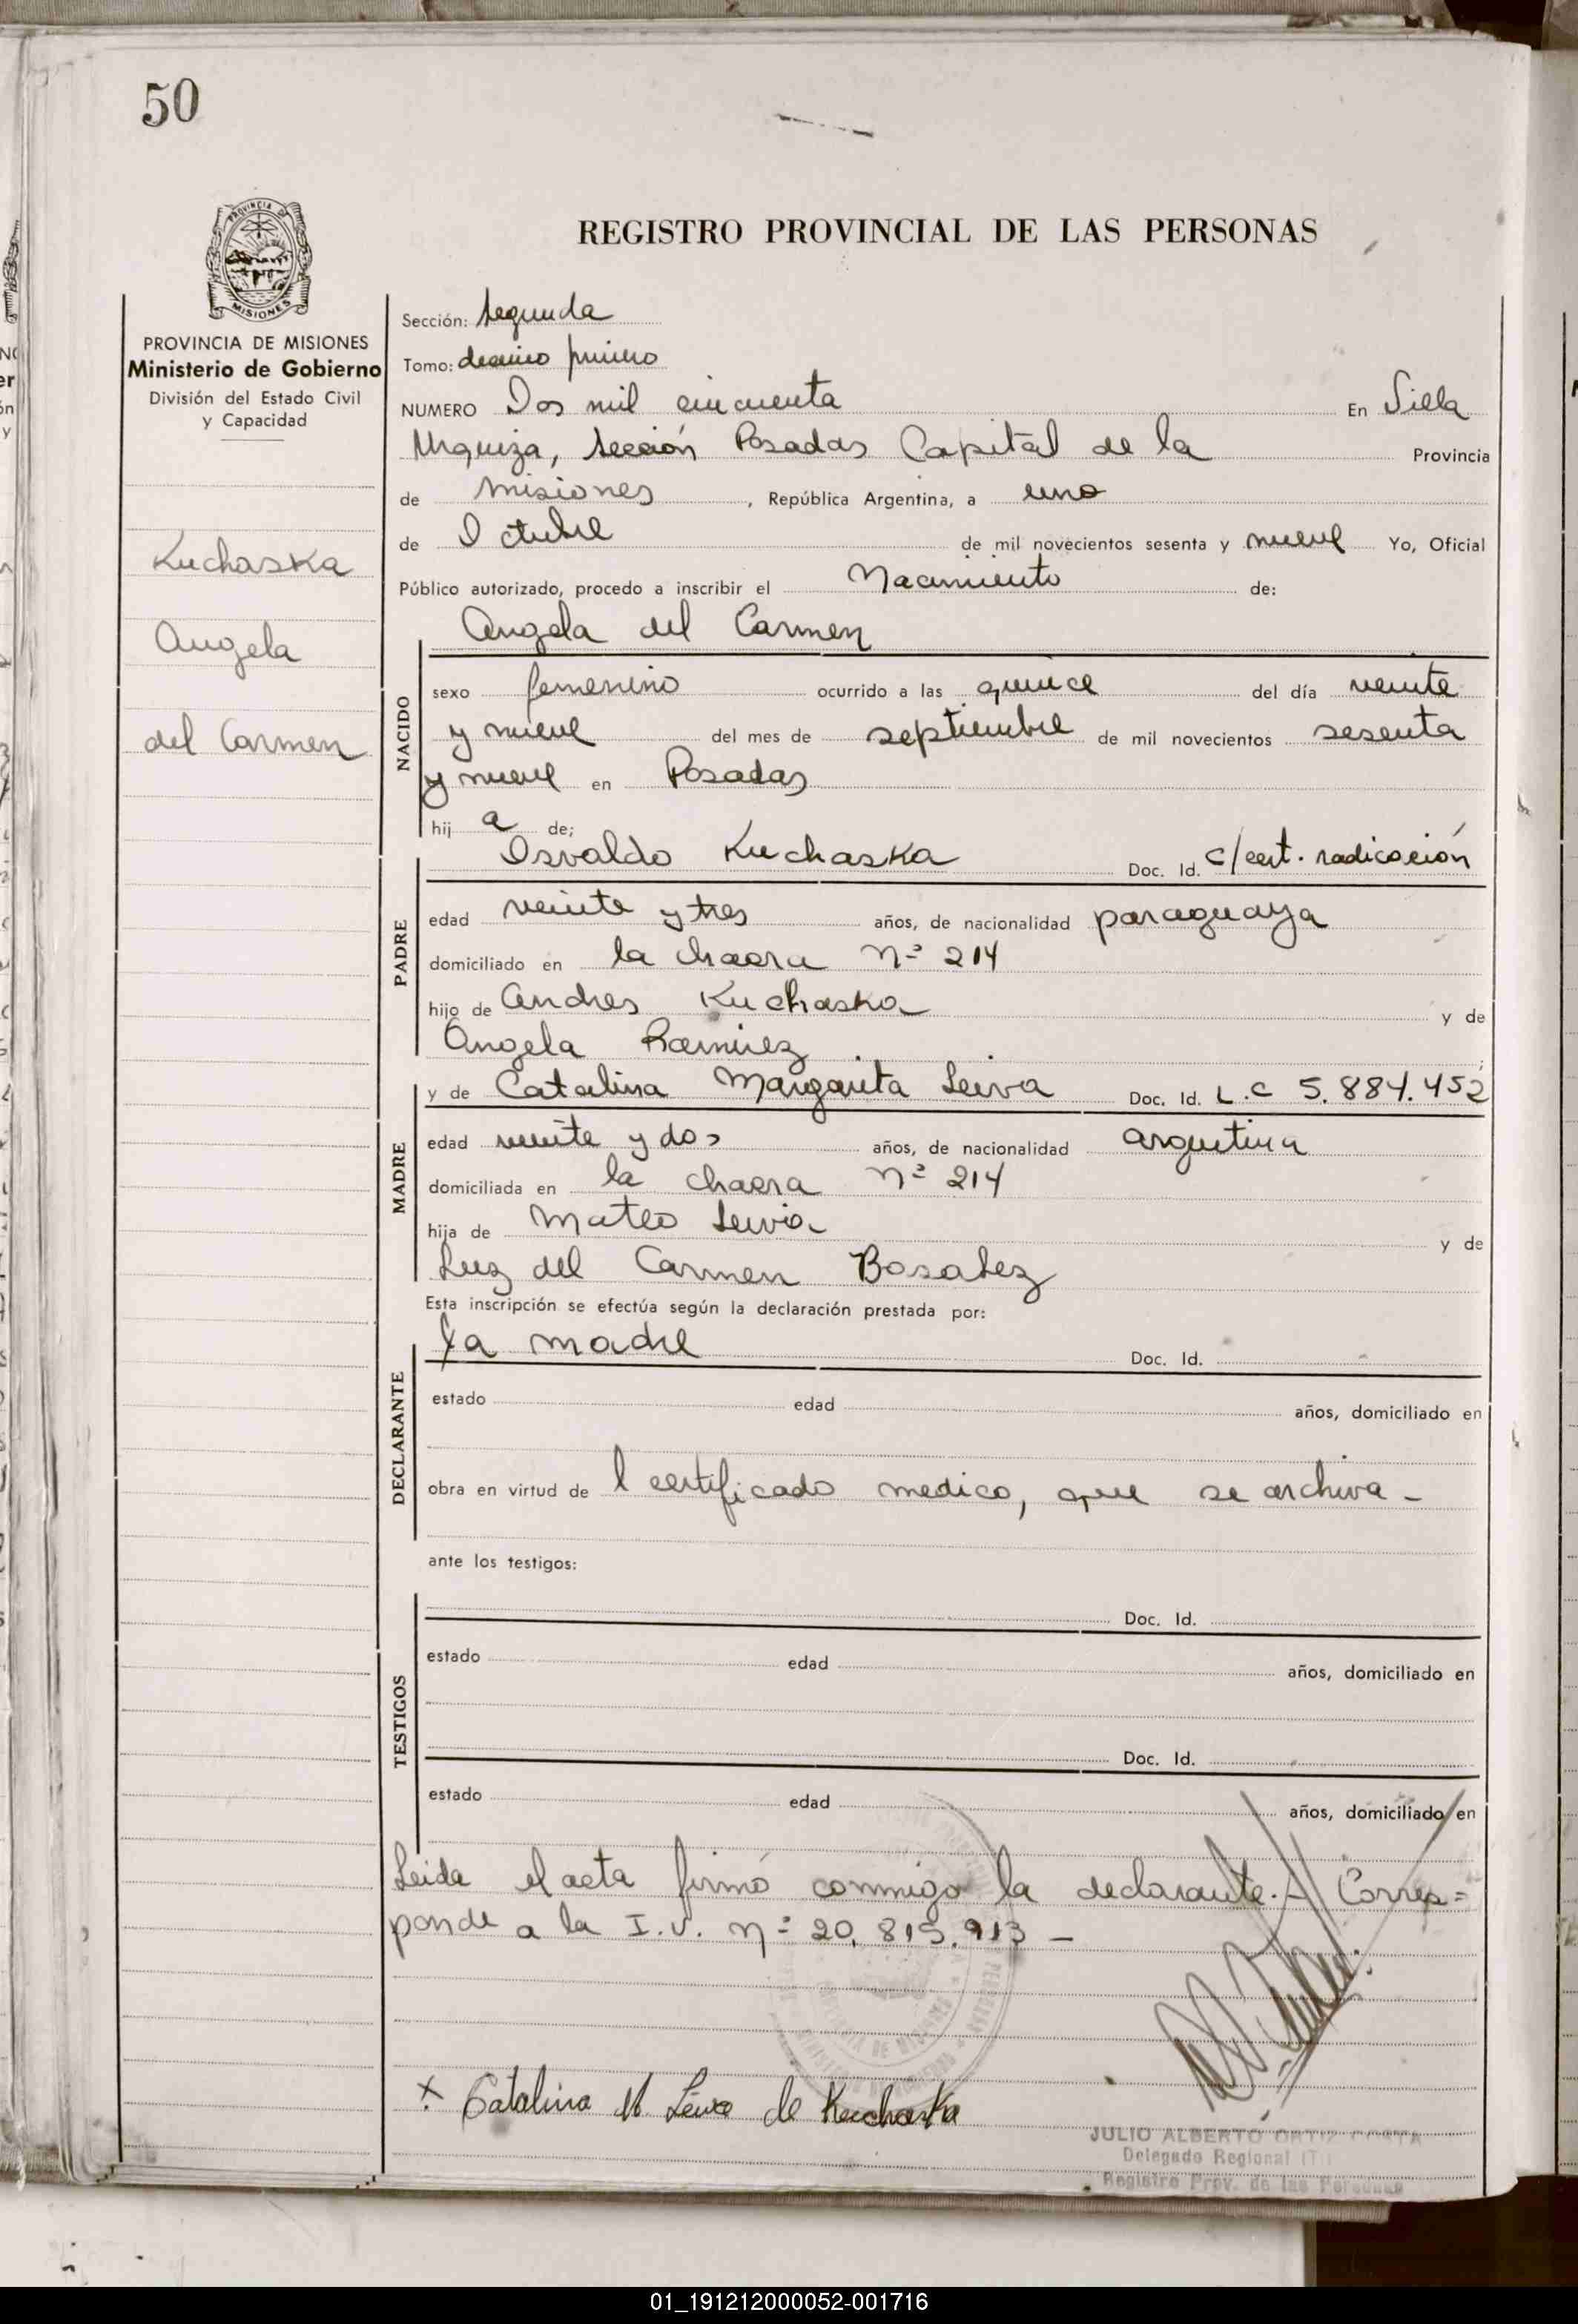 50
PROVINCIA DE
MISIONES
REGISTRO PROVINCIAL DE LAS PERSONAS
PROVINCIA DE MISIONES
Ministerio de Gobierno
División del Estado Civil
y Capacidad
Kuchaska
Angela
del Carmen
Sección: Segunda
Tomo: decimo primero
NUMERO Dos mil cincuenta En Villa
Urquiza, Sección Posadas Capital de la Provincia
de Misiones, República Argentina, a uno
de Octubre de mil novecientos sesenta y nueve Yo, Oficial
Público autorizado, procedo a inscribir el Nacimiento de:
Angela del Carmen
NACIDO
sexo femenino ocurrido a las quince del día veinte
y nueve del mes de septiembre de mil novecientos sesenta
y nueve en Posadas
hij a de;
Osvaldo Kuchaska Doc. Id. c/cert. radicación
PADRE
edad veinte y tres años, de nacionalidad paraguaya
domiciliado en la chacra Nº 214
hijo de Andres Kuchaska y de
Angela Ramirez
y de Catalina Margarita Leiva Doc. Id. L.C 5.884.452
MADRE
edad veinte y dos años, de nacionalidad argentina
domiciliada en la chacra Nº 214
hija de Mateo Leiva y de
Luz del Carmen
Esta inscripción se efectúa según la declaración prestada por:
la madre Doc. Id.
DECLARANTE
estado edad años, domiciliado en
obra en virtud de l certificado medico, que se archiva -
ante los testigos:
Doc. Id.
TESTIGOS
estado edad años, domiciliado en
Doc. Id.
estado edad años, domiciliado en
Leida el acta firmó conmigo la declarante.- Corres=
ponde a la I.V. Nº 20.815.913 -
x Catalina M Leiva de Kuchaska
JULIO ALBERTO ORTIZ COSTA
Delegado Regional (T)
Registro Prov. de las Personas
01_191212000052-001716